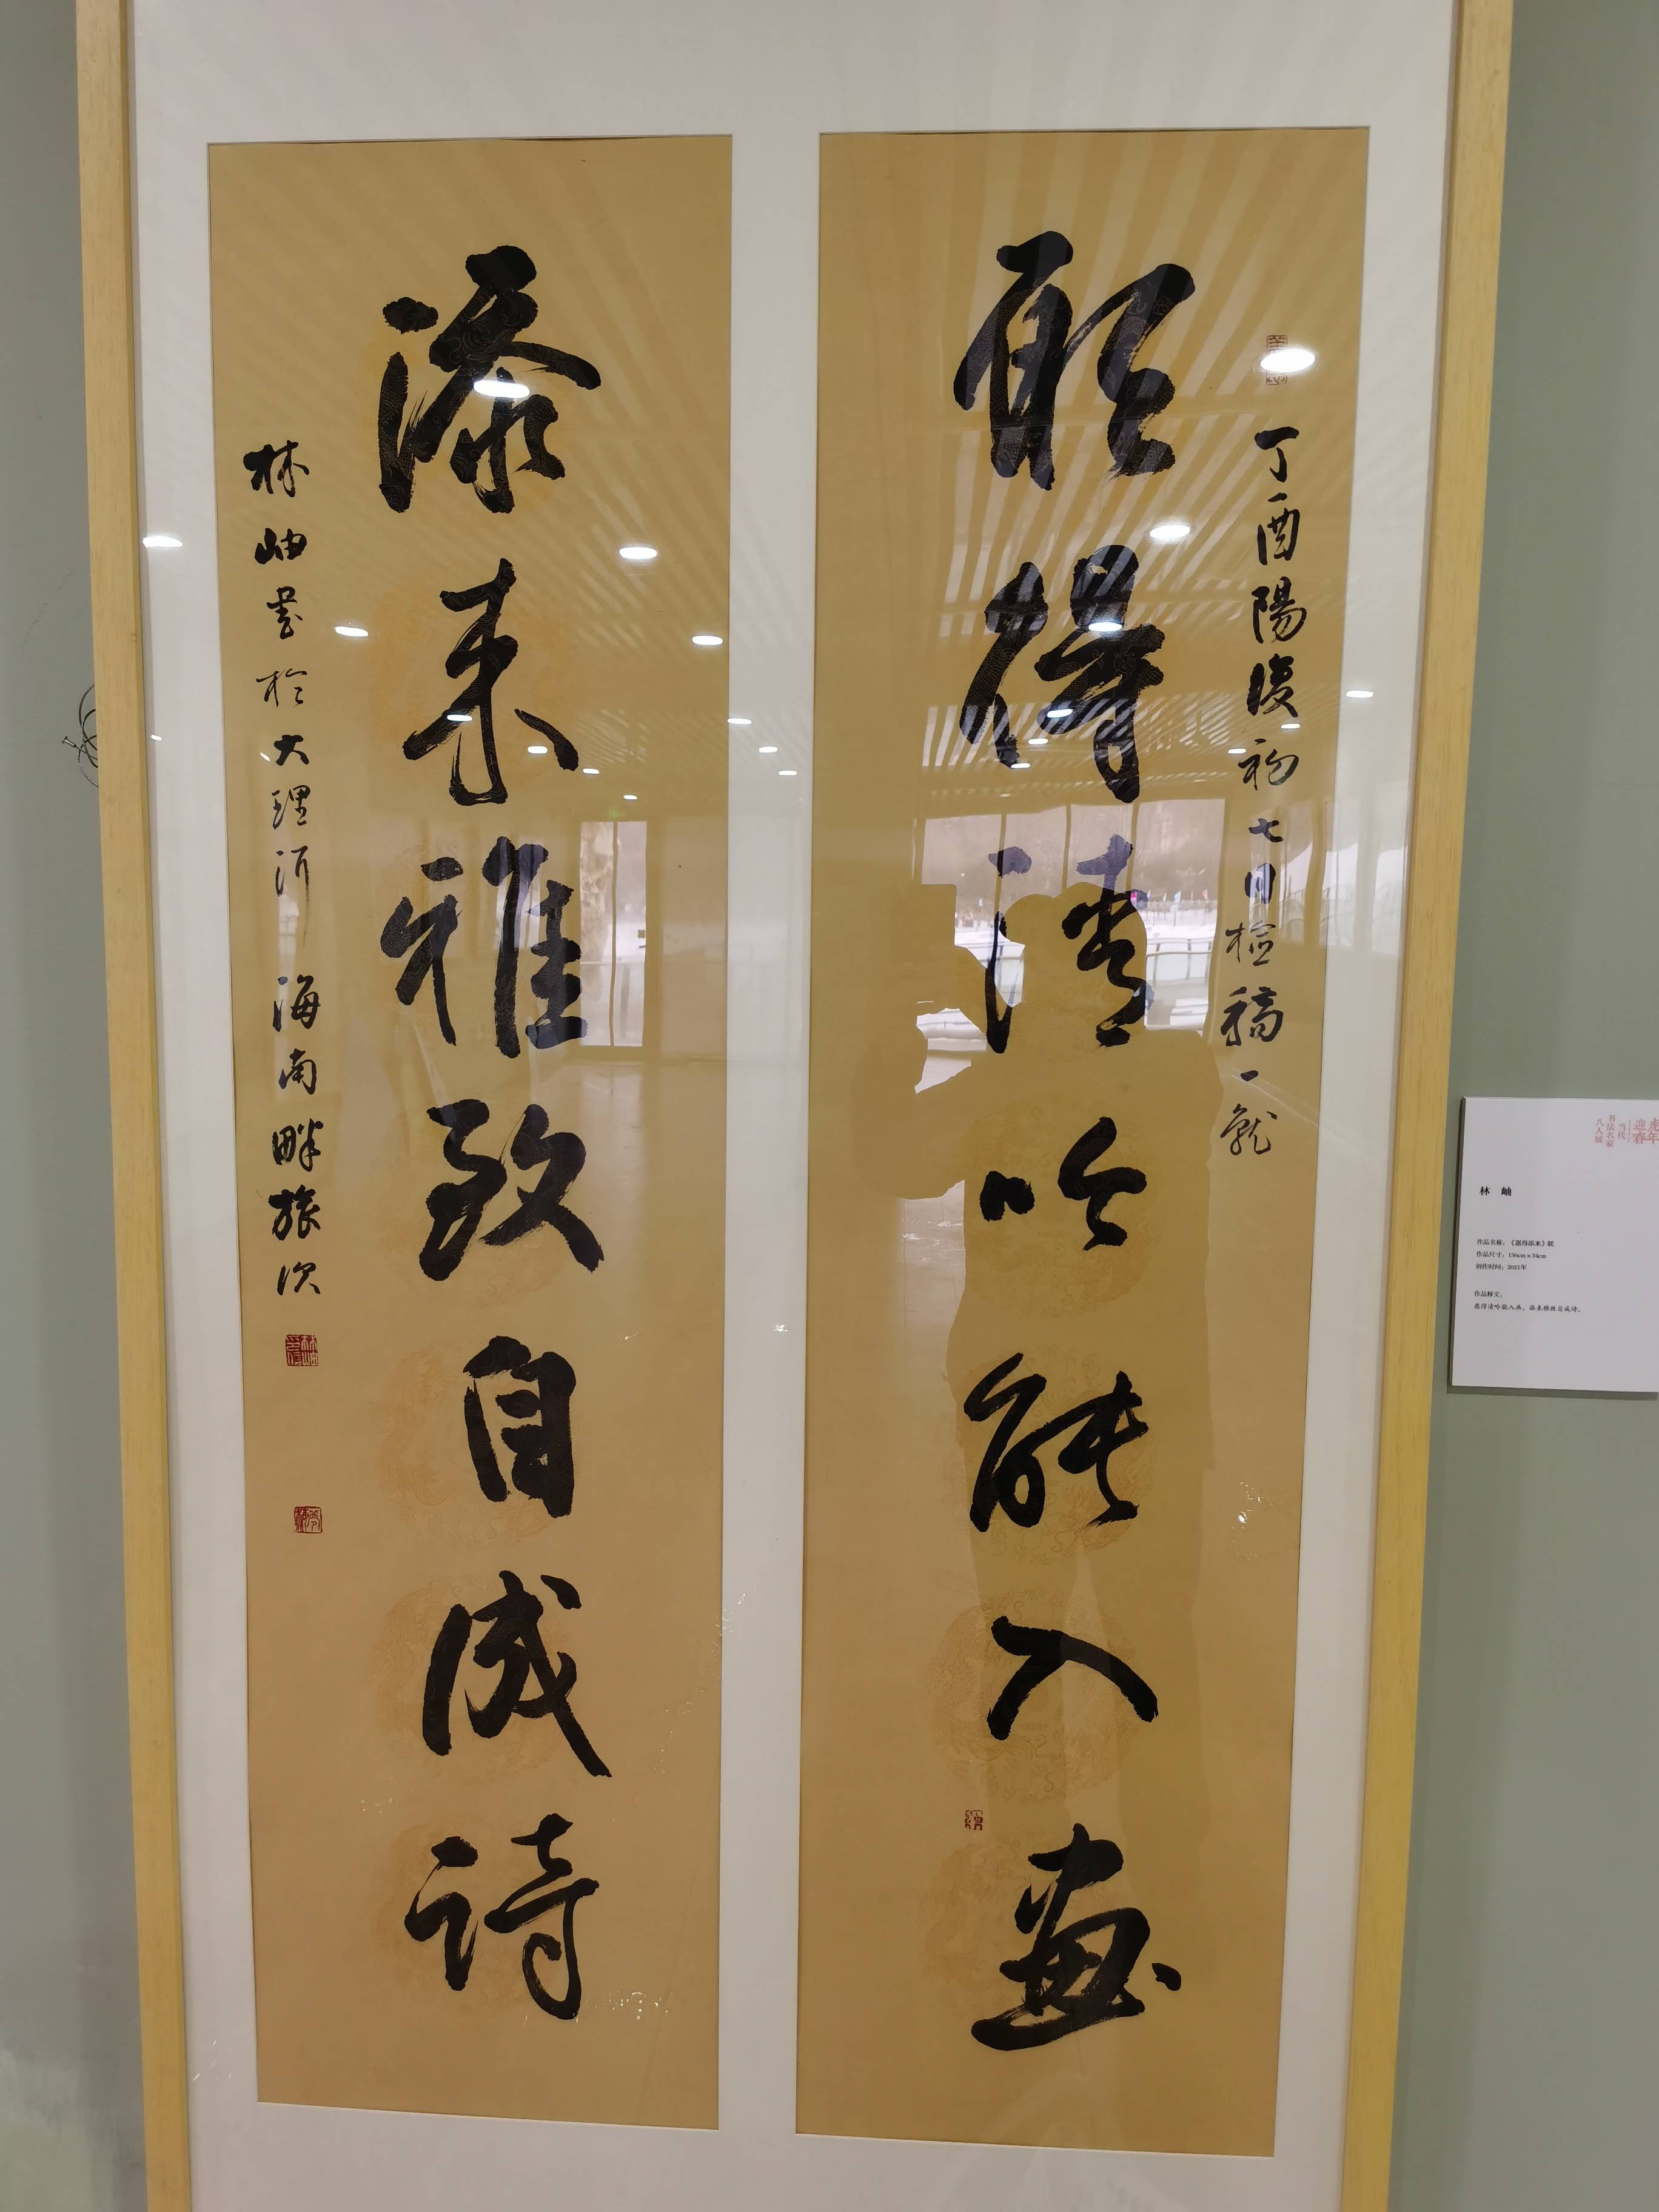 丁酉陽復初七日檢稿一觥
願得清吟能入畫
添来雅致自成詩
林岫書於大理洱海南畔旅次
虎年
迎春
当代
书法名家
八人展
林 岫
作品名称：《愿得添来》联
作品尺寸：136cm×34cm
创作时间：2021年
作品释文：
愿得清吟能入画，添来雅致自成诗。